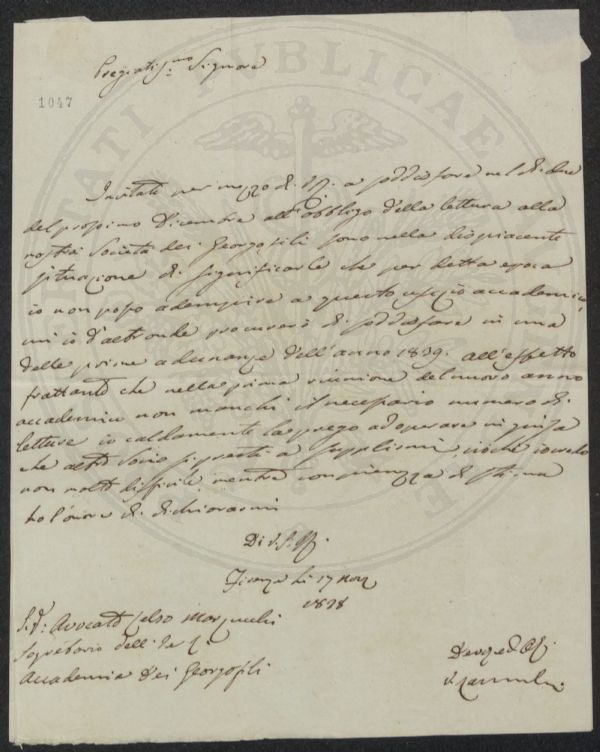 Pregiatis.mo Signore
1047
PROSPERITATI PUBLICAE AUGENDAE
Invitato per mezzo di a soddisfare nel dì due
del prossimo Dicembre all'obbligo della lettura alla
nostra Società dei Georgofili sono nella dispiacente
situazione di significarle che per detta epoca
io non posso adempire a questo ufizio accademico,
mi d'altronde procurerò di soddisfare in una
delle prime adunanze dell'anno 1839. all'effetto
frattanto che nella prima riunione del nuovo anno
accademico non manchi il necessario numero di
letture io caldamente la prego adoperare in guisa
che altro Socio si presti a supplirmi, credo
non molto difficile mentre con pienezza di stima
ho l'onore di dichiararmi
Di V. S.
Firenze li 17 Nov
1838
Avvocato Celso Marzucchi
Segretario dell'
Accademia dei Georgofili